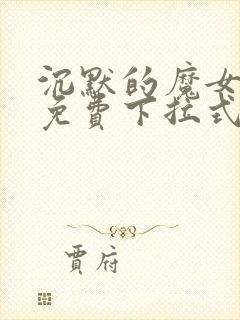 沉默的魔女
免費下拉式
賈府